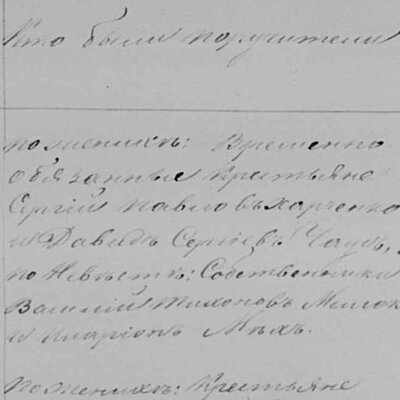 Кто были поручители
по женихѣ: Временно
обязанные крестьяне
Сергій Павловъ Харченко
и Давидъ Сергіевъ Чаусъ,
по Невѣстѣ: Собственники
Василій Тихоновъ
и Иларіонъ Мѣхъ.
по женихѣ: Крестьяне